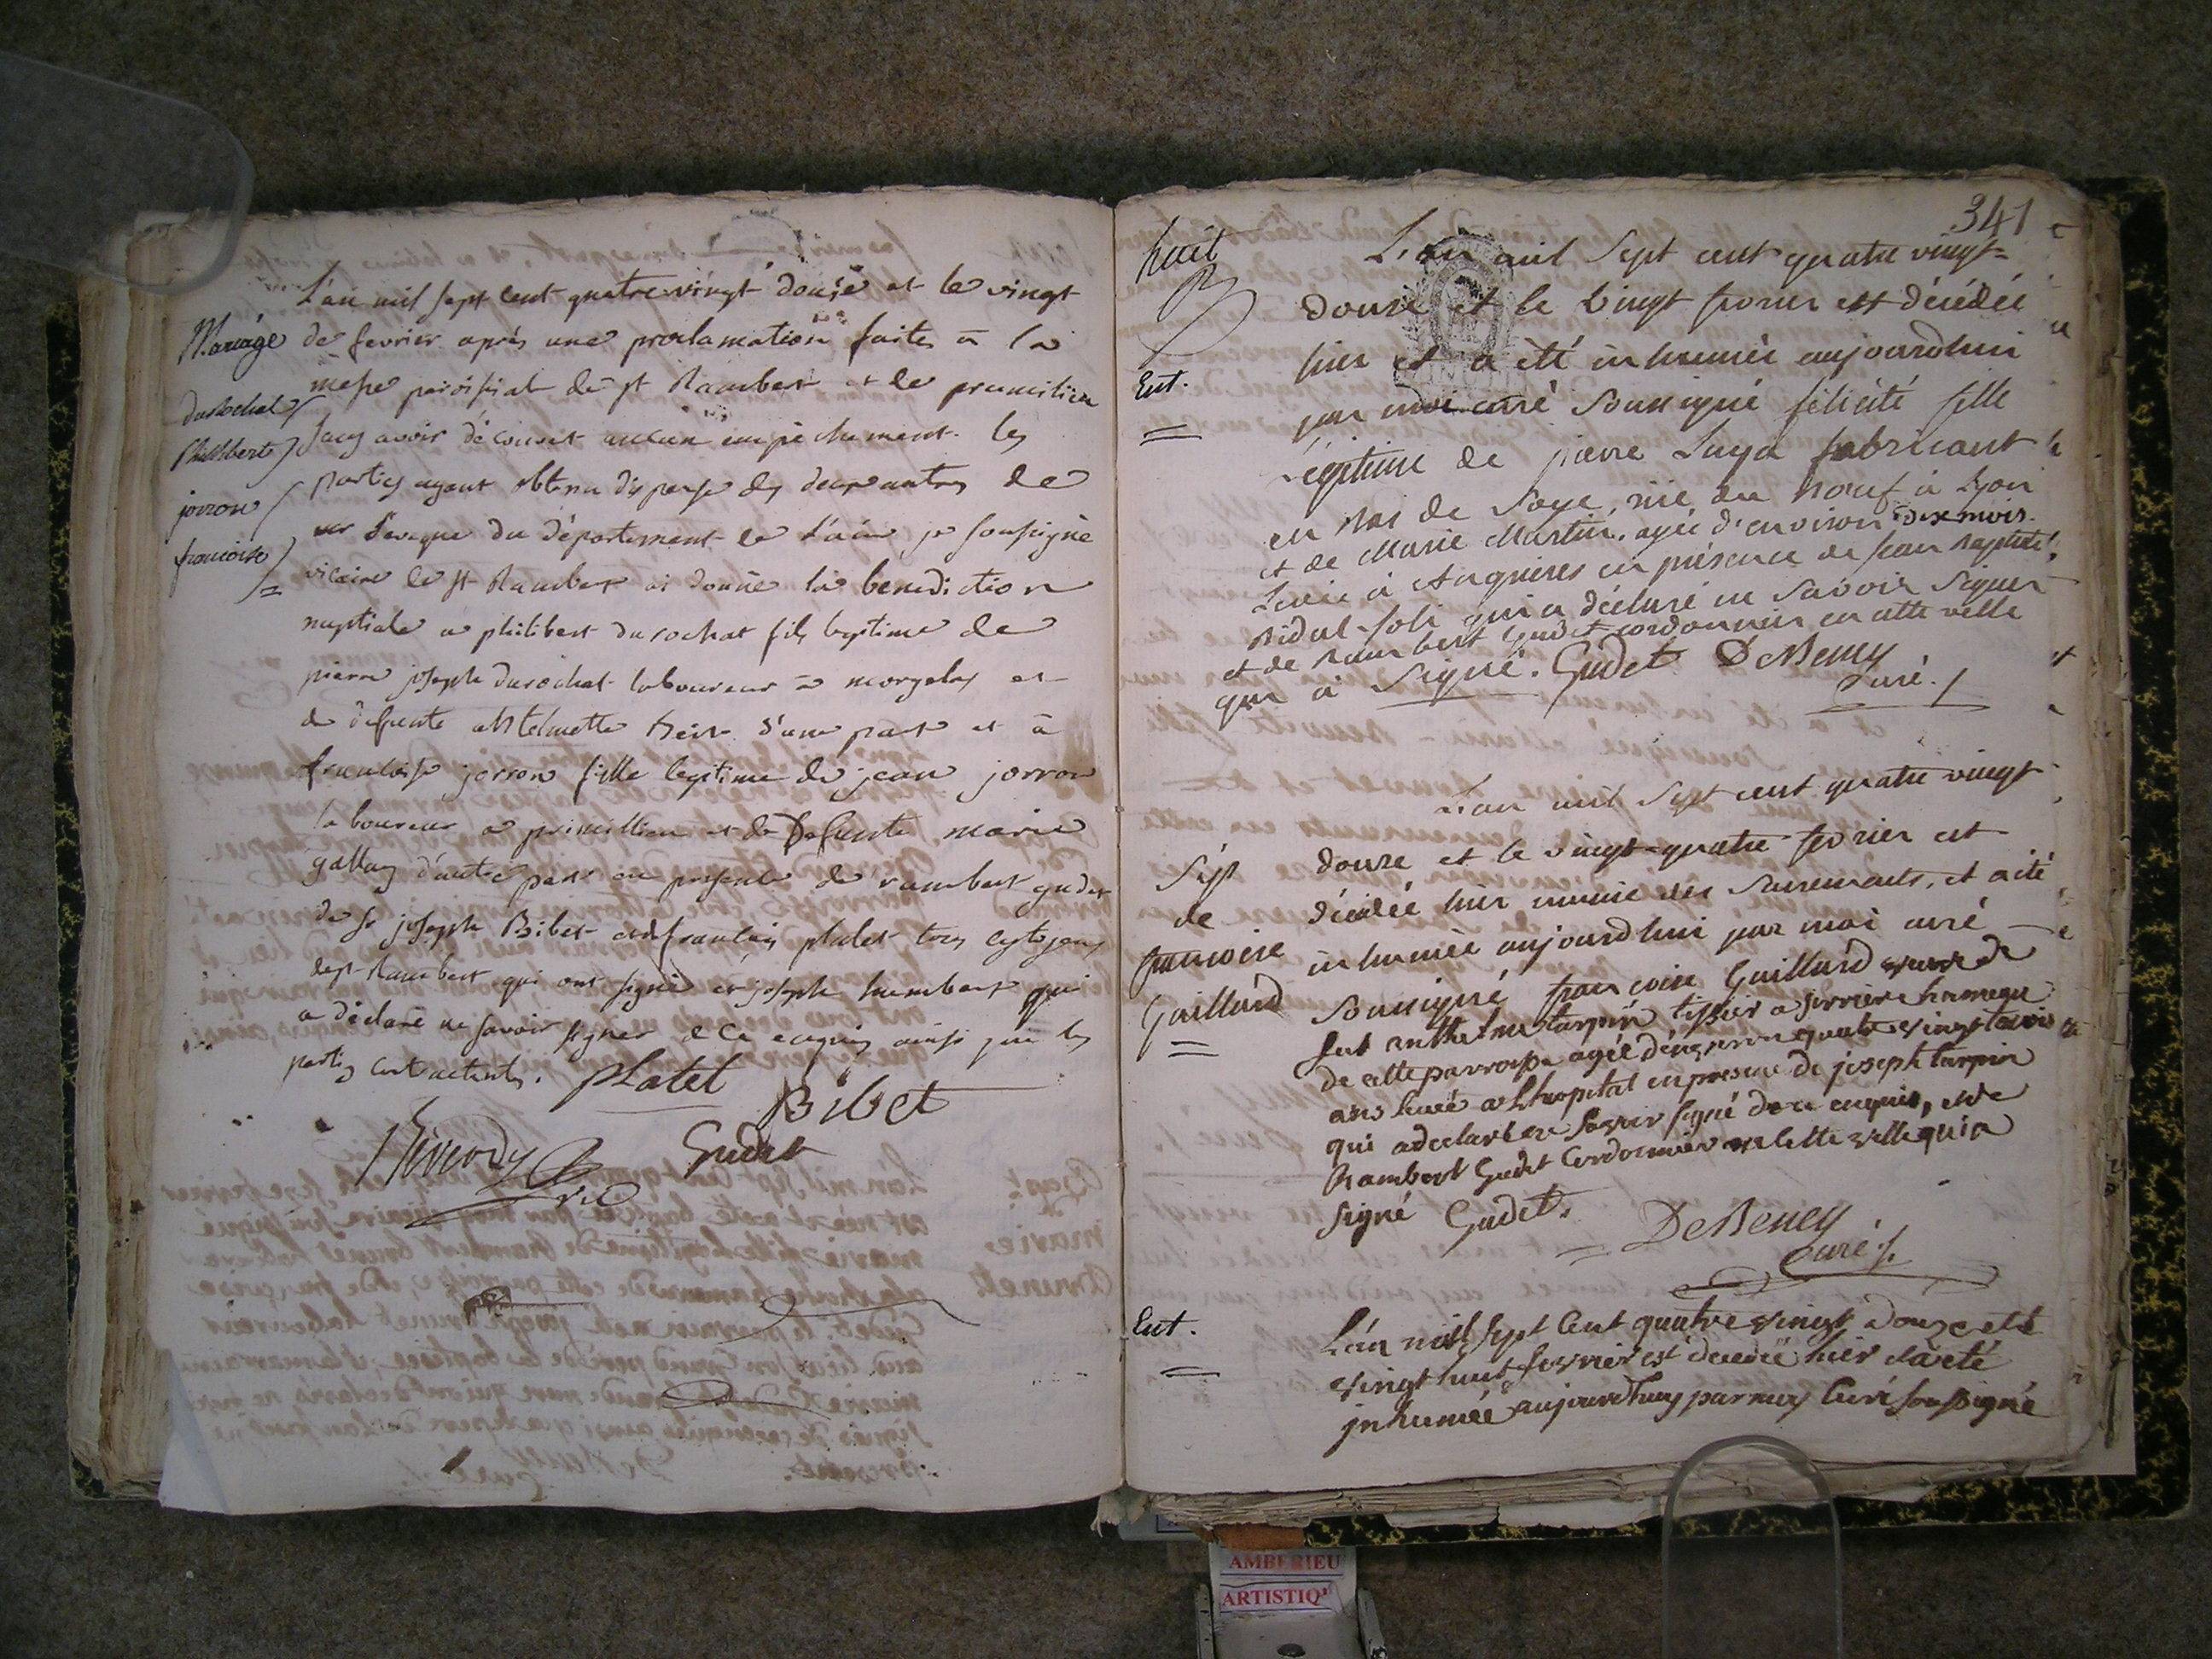 L'an mil sept cent quatre vingt douze et le vingt
Mariage
de fevrier après une proclamation faite a la
messe paroissial de st Rambert et de premilieu
durochat
Philibert
sans avoir découvert aucun empechement les
parties ayant obtenu dispense des deux autres de
jorron
francoise
l'eveque du département de l'ain je soussigné
vicaire de st Rambert ai donné la benediction
nuptiale a philibert durochat fils legitime de
pierre joseph durochat laboureur a morgelas et
de défunte d'une part et à
francoise jorron fille legitime de jean jorron
laboureur a primillieu et de Defunte marie
d'autre part en presence de rambert gudet
de sr joseph Bibet et de francois platet tous cytoyens
de st Rambert qui ont signé et joseph humbert qui
a déclaré ne savoir signer de ce enquis ainsi que les
parties contractantes. Platet
Bibet
Gudet
vic
341
huit
L'an mil sept cent quatre vingt=
douze et le vingt fevrier est décédée
hier et a été inhumée aujourdhui
Ent.
par moi curé soussigné félicité fille
Légitime de pierre Luya fabricant
en bas de soye, née du nouf à Lyon
et de Marie Martin, agée d'environ dix mois
à Angrieres en présence de jean baptiste
Vidal-joli qui a déclaré ne savoir signer
et de Rambert Gudet cordonnier en cette ville
qui a signé. Gudet DeBeney
Curé./
L'an mil sept cent quatre vingt
Sép
de
francoise
Gaillard
douze et le vingt-quatre fevrier est
décédée hier munie des sacrements, et a été
inhumée aujourdhui par moi curé
soussigné francoise Gaillard veuve de
fut anthelme tarpin tissier a serriere hameau
de cette parroisse agée d'environ quatre vingt trois
ans a L'hopital en presence de joseph tarpin
qui a declaré ne savoir signé de ce enquis, et de
Rambert Gudet Cordonnier en Cette ville qui a
signé Gudet.
DeBeney
Curé./
Ent.
L'an mil sept Cent quatre vingt douze et le
vingt huit fevrier est decedée hier et a été
jnhumée aujourdhuy par moy Curé soussigné
AMBERIEU
ARTISTIQ'